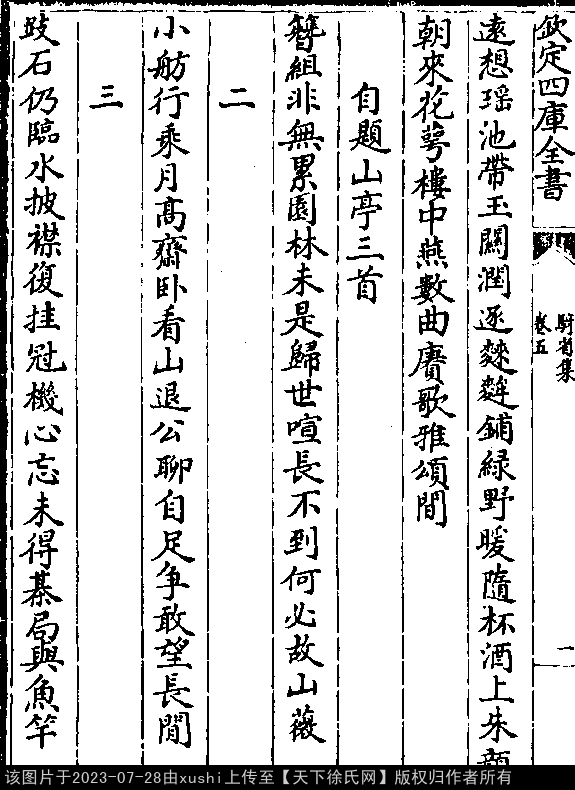 欽定四庫全書
騎省集
卷五
一
遠想瑶池帶玉關潤逐䴭麰鋪緑野暖隨杯酒上朱顔
朝來花萼樓中燕數曲賡歌雅頌間
自題山亭三首
簪組非無累園林未是歸世喧長不到何必故山薇
二
小舫行乘月髙齋卧看山退公聊自足争敢望長閒
三
跂石仍臨水披襟復挂冠機心忘未得棊局與魚竿
该图片于2023-07-28由xushi上传至【天下徐氏网】版权归作者所有